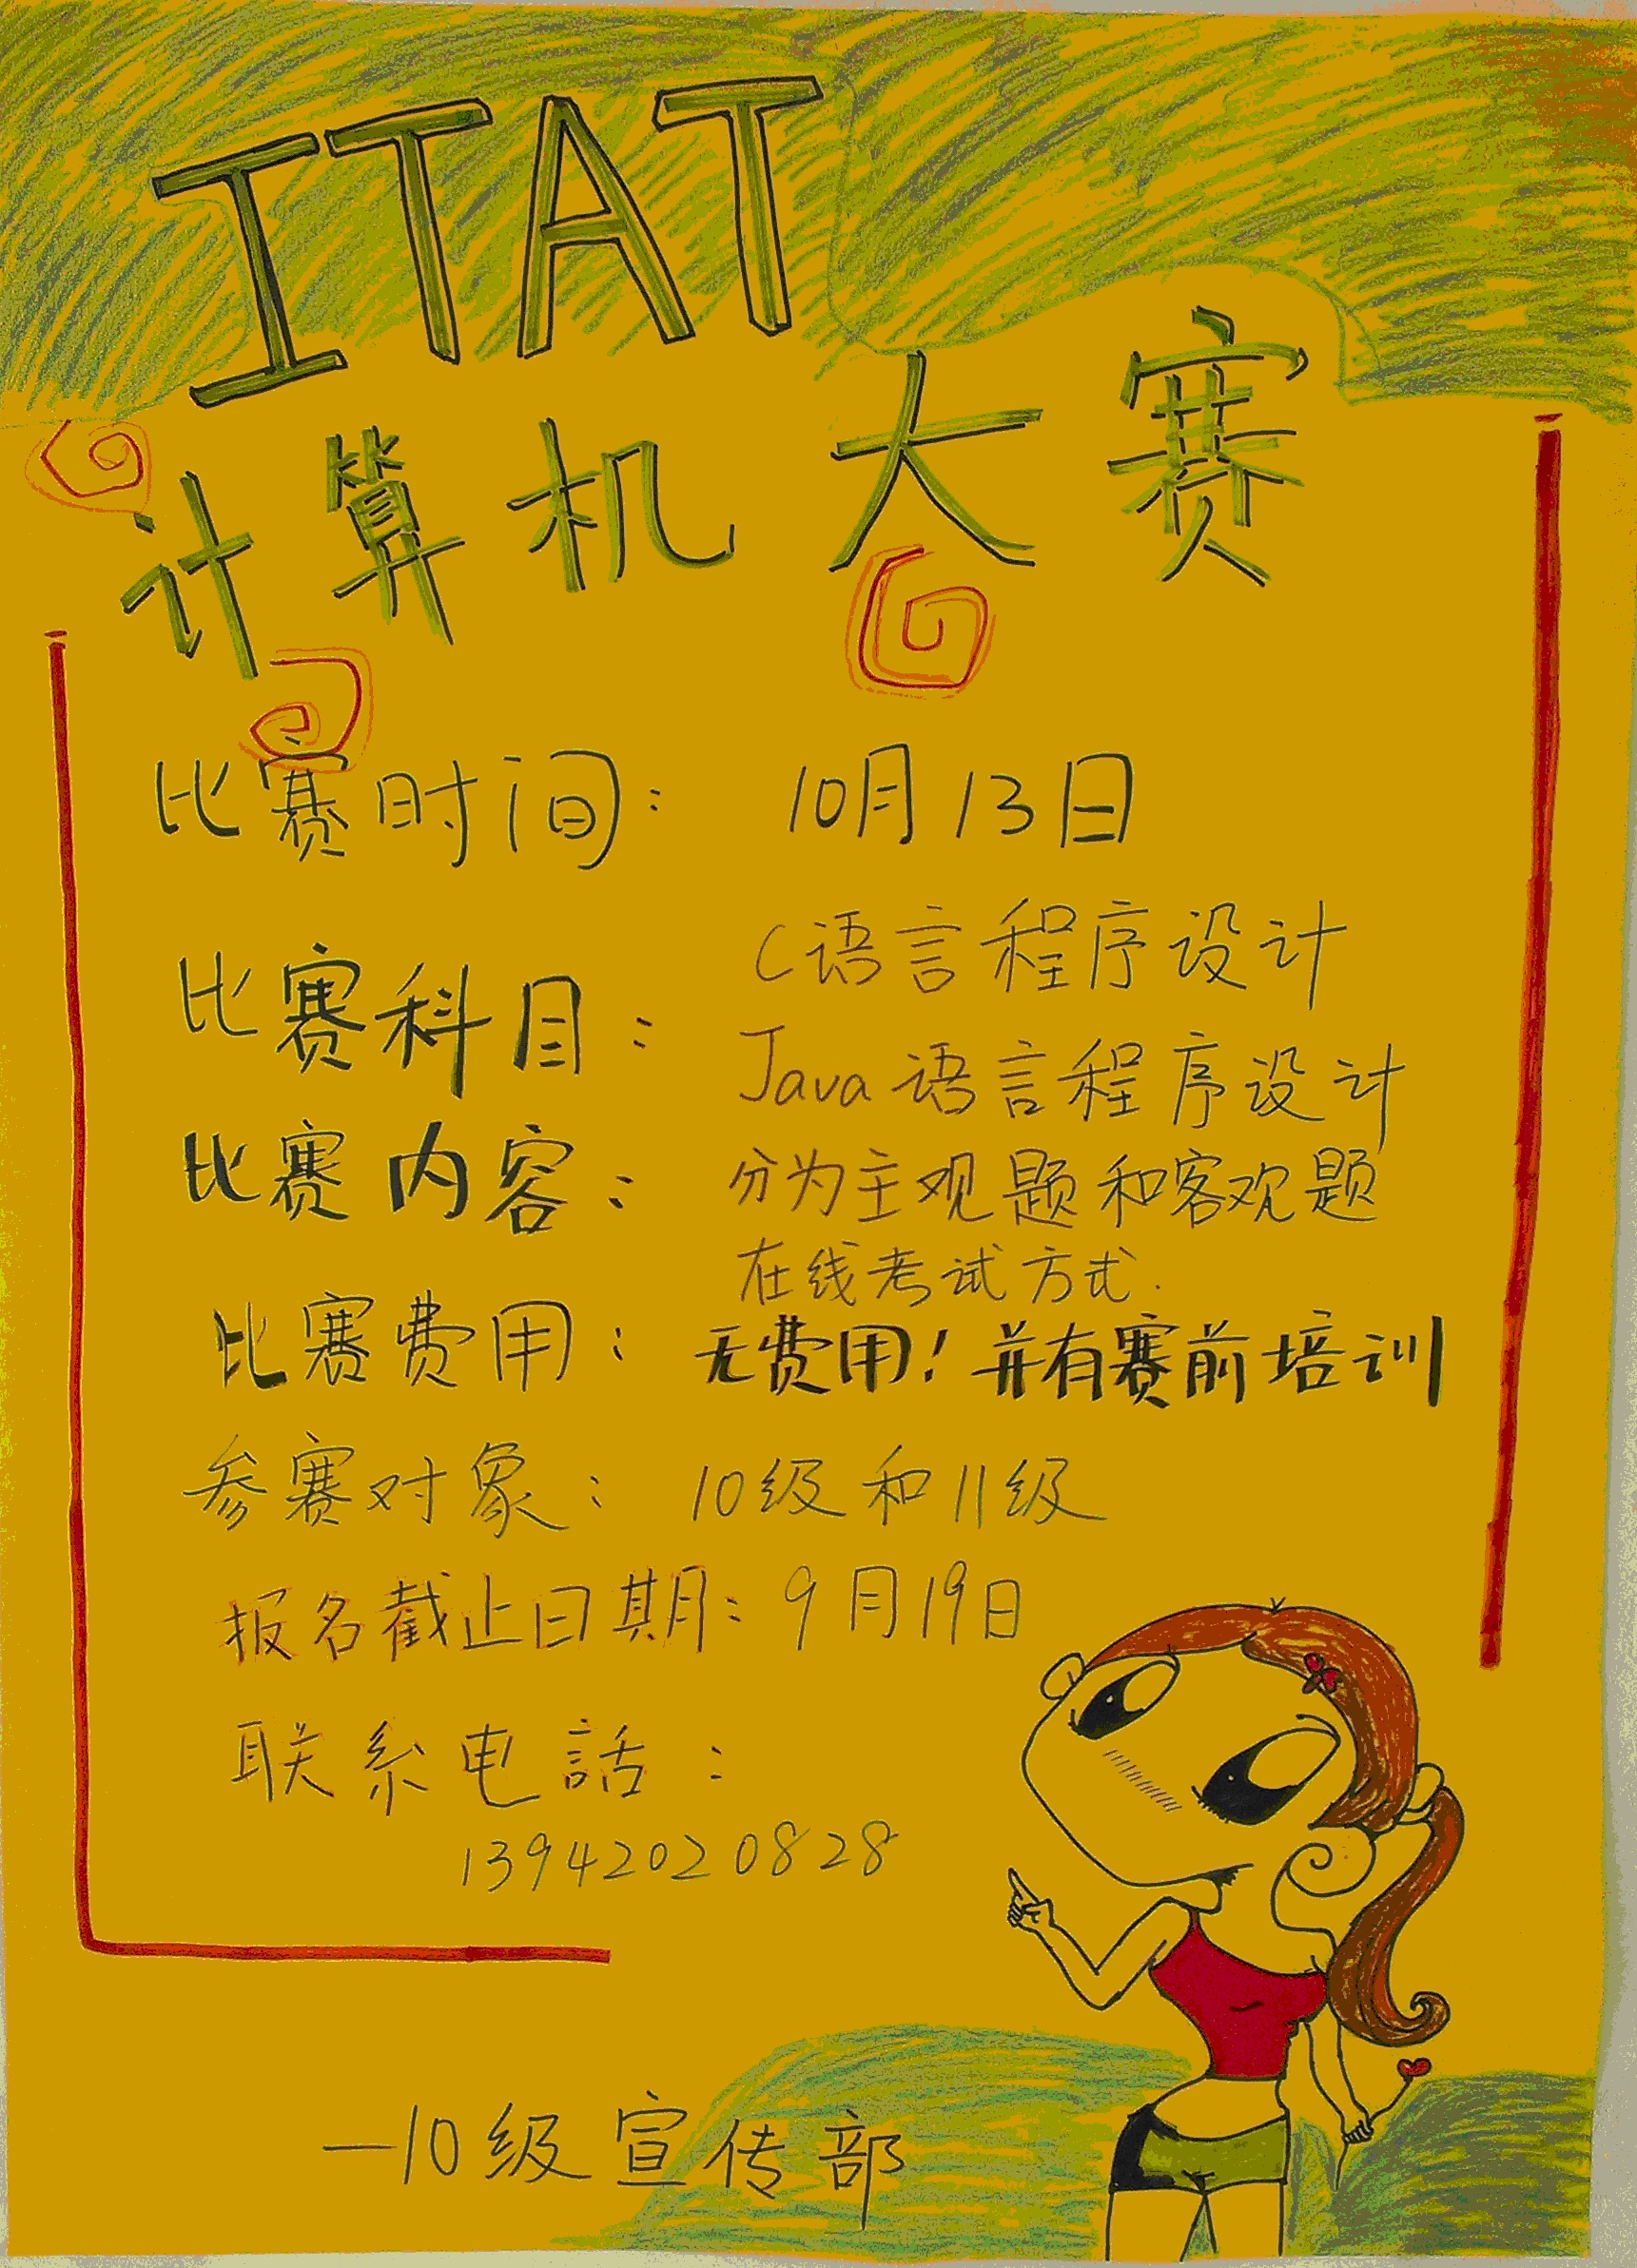 ITAT
计算机大赛
比赛时间： 10月13日
比赛科目： C语言程序设计
Java语言程序设计
比赛内容： 分为主观题和客观题
在线考试方式.
比赛费用： 无费用！并有赛前培训
参赛对象： 10级和11级
报名截止日期：9月19日
联系电話：
13942020828
—10级宣传部